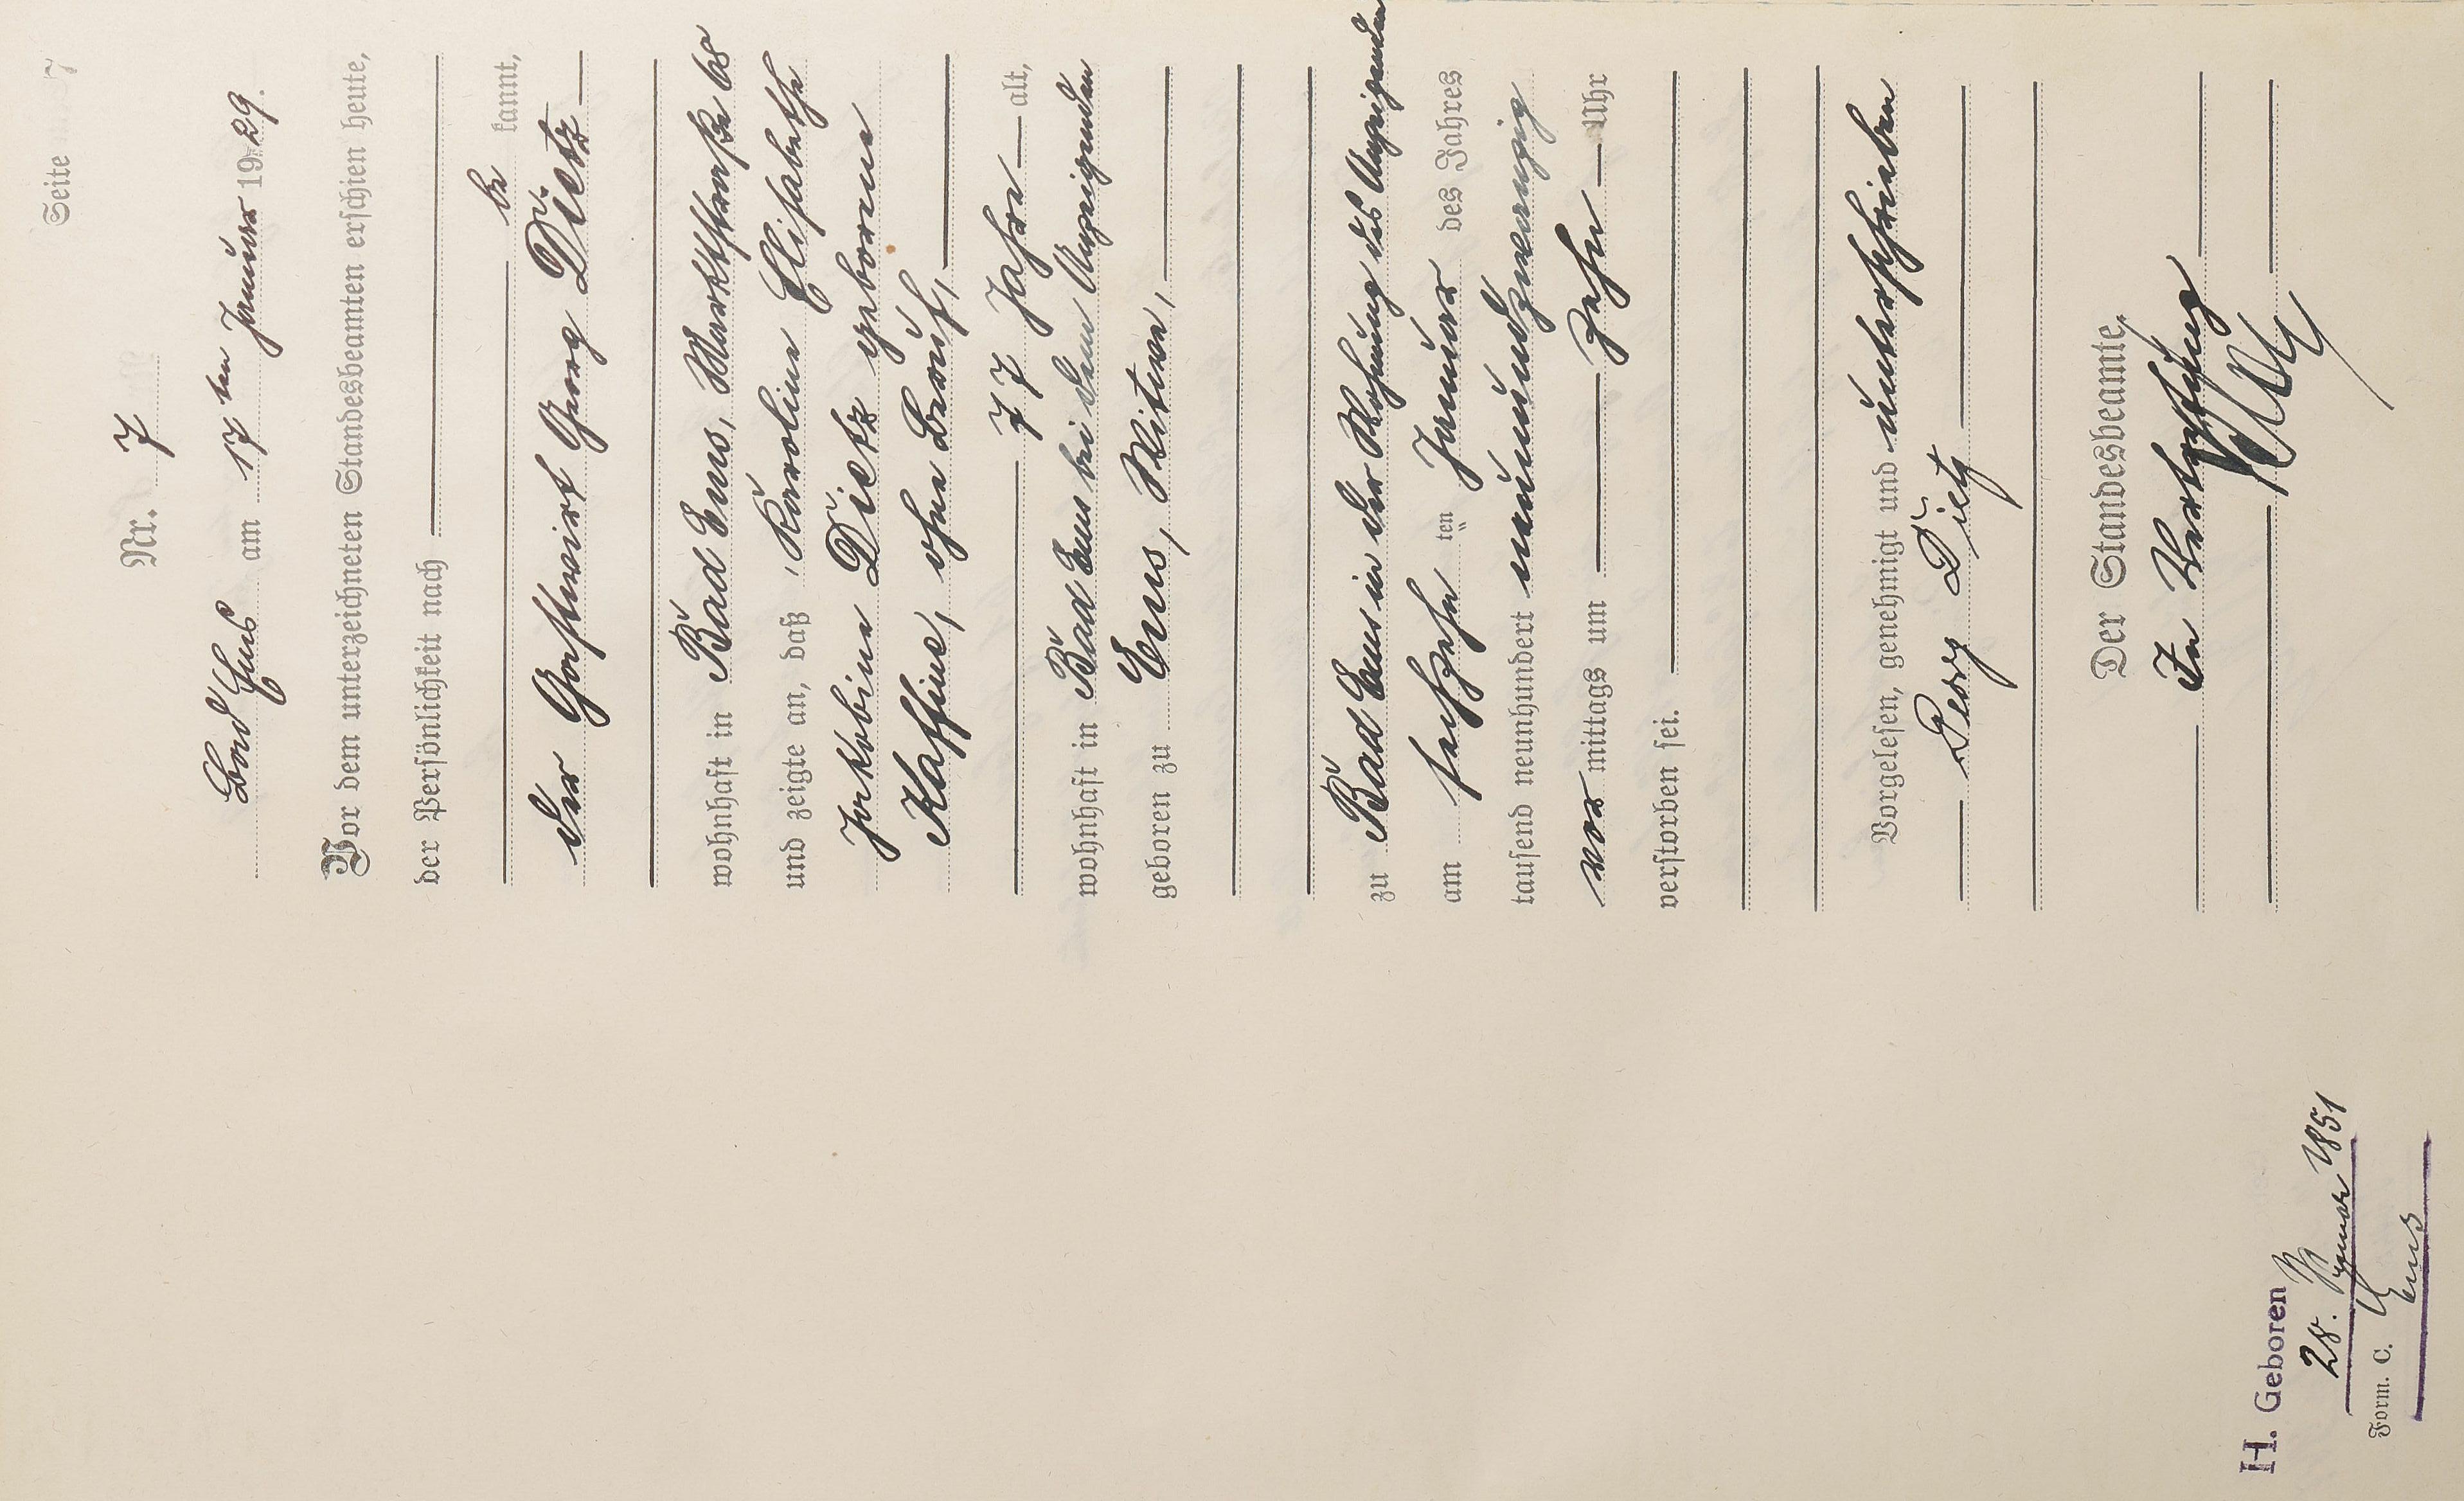 Seite 7
Nr. 7
Bad Ems am 17ten Januar 1929.
Vor dem unterzeichneten Standesbeamten erschien heute,
der Persönlichkeit nach
be kannt,
der Gastwirt Georg Dietz
wohnhaft in Bad Ems, Marktstraße 68
und zeigte an, daß Karoline Elisabethe
Jakobine Dietz geborene
Kaffine, ohne Beruf,
77 Jahre alt,
wohnhaft in Bad Ems bei dem Anzeigenden
geboren zu Ems, Witwe,
zu Bad Ems in der Wohnung des Anzeigenden
am sechzehn ten Januar des Jahres
tausend neunhundert neunundzwanzig
vor mittags um zehn Uhr
verstorben sei.
Vorgelesen, genehmigt und unterschrieben
Georg Dietz
Der Standesbeamte.
In Vertretung
H. Geboren
28. 1851
Form. C. Ems